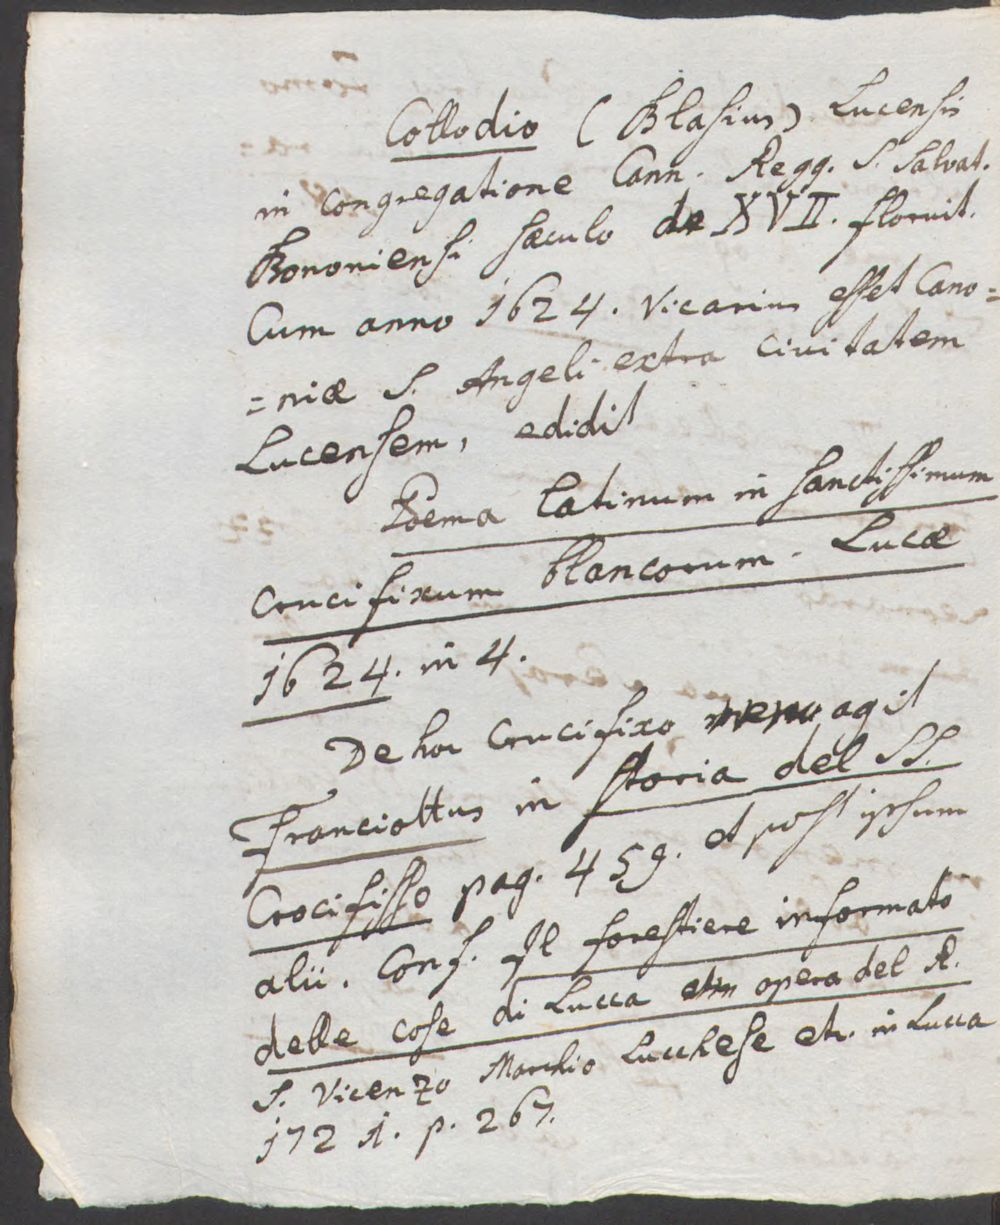 Collodio (Blasius) Lucensis
in congregatione Cann. Regg. S. Salvat.
Bononiensi sæculo XVII. floruit.
Cum anno 1624. Vicarius esset Cano=
=niæ S. Angeli extra civitatem
Lucensem, edidit
Poema latinum in sanctissimum
crucifixum blancorum. Lucæ
1624. in 4.
De hoc Crucifixo agit
Franciottus in storia del SS.
Crocifisso pag. 459. et post ipsum
alii. Conf. Il forestiere informato
delle cose di Lucca opera del R.
S. Vicenzo Marchio Lucchese etc. in Lucca
1721. p. 267.